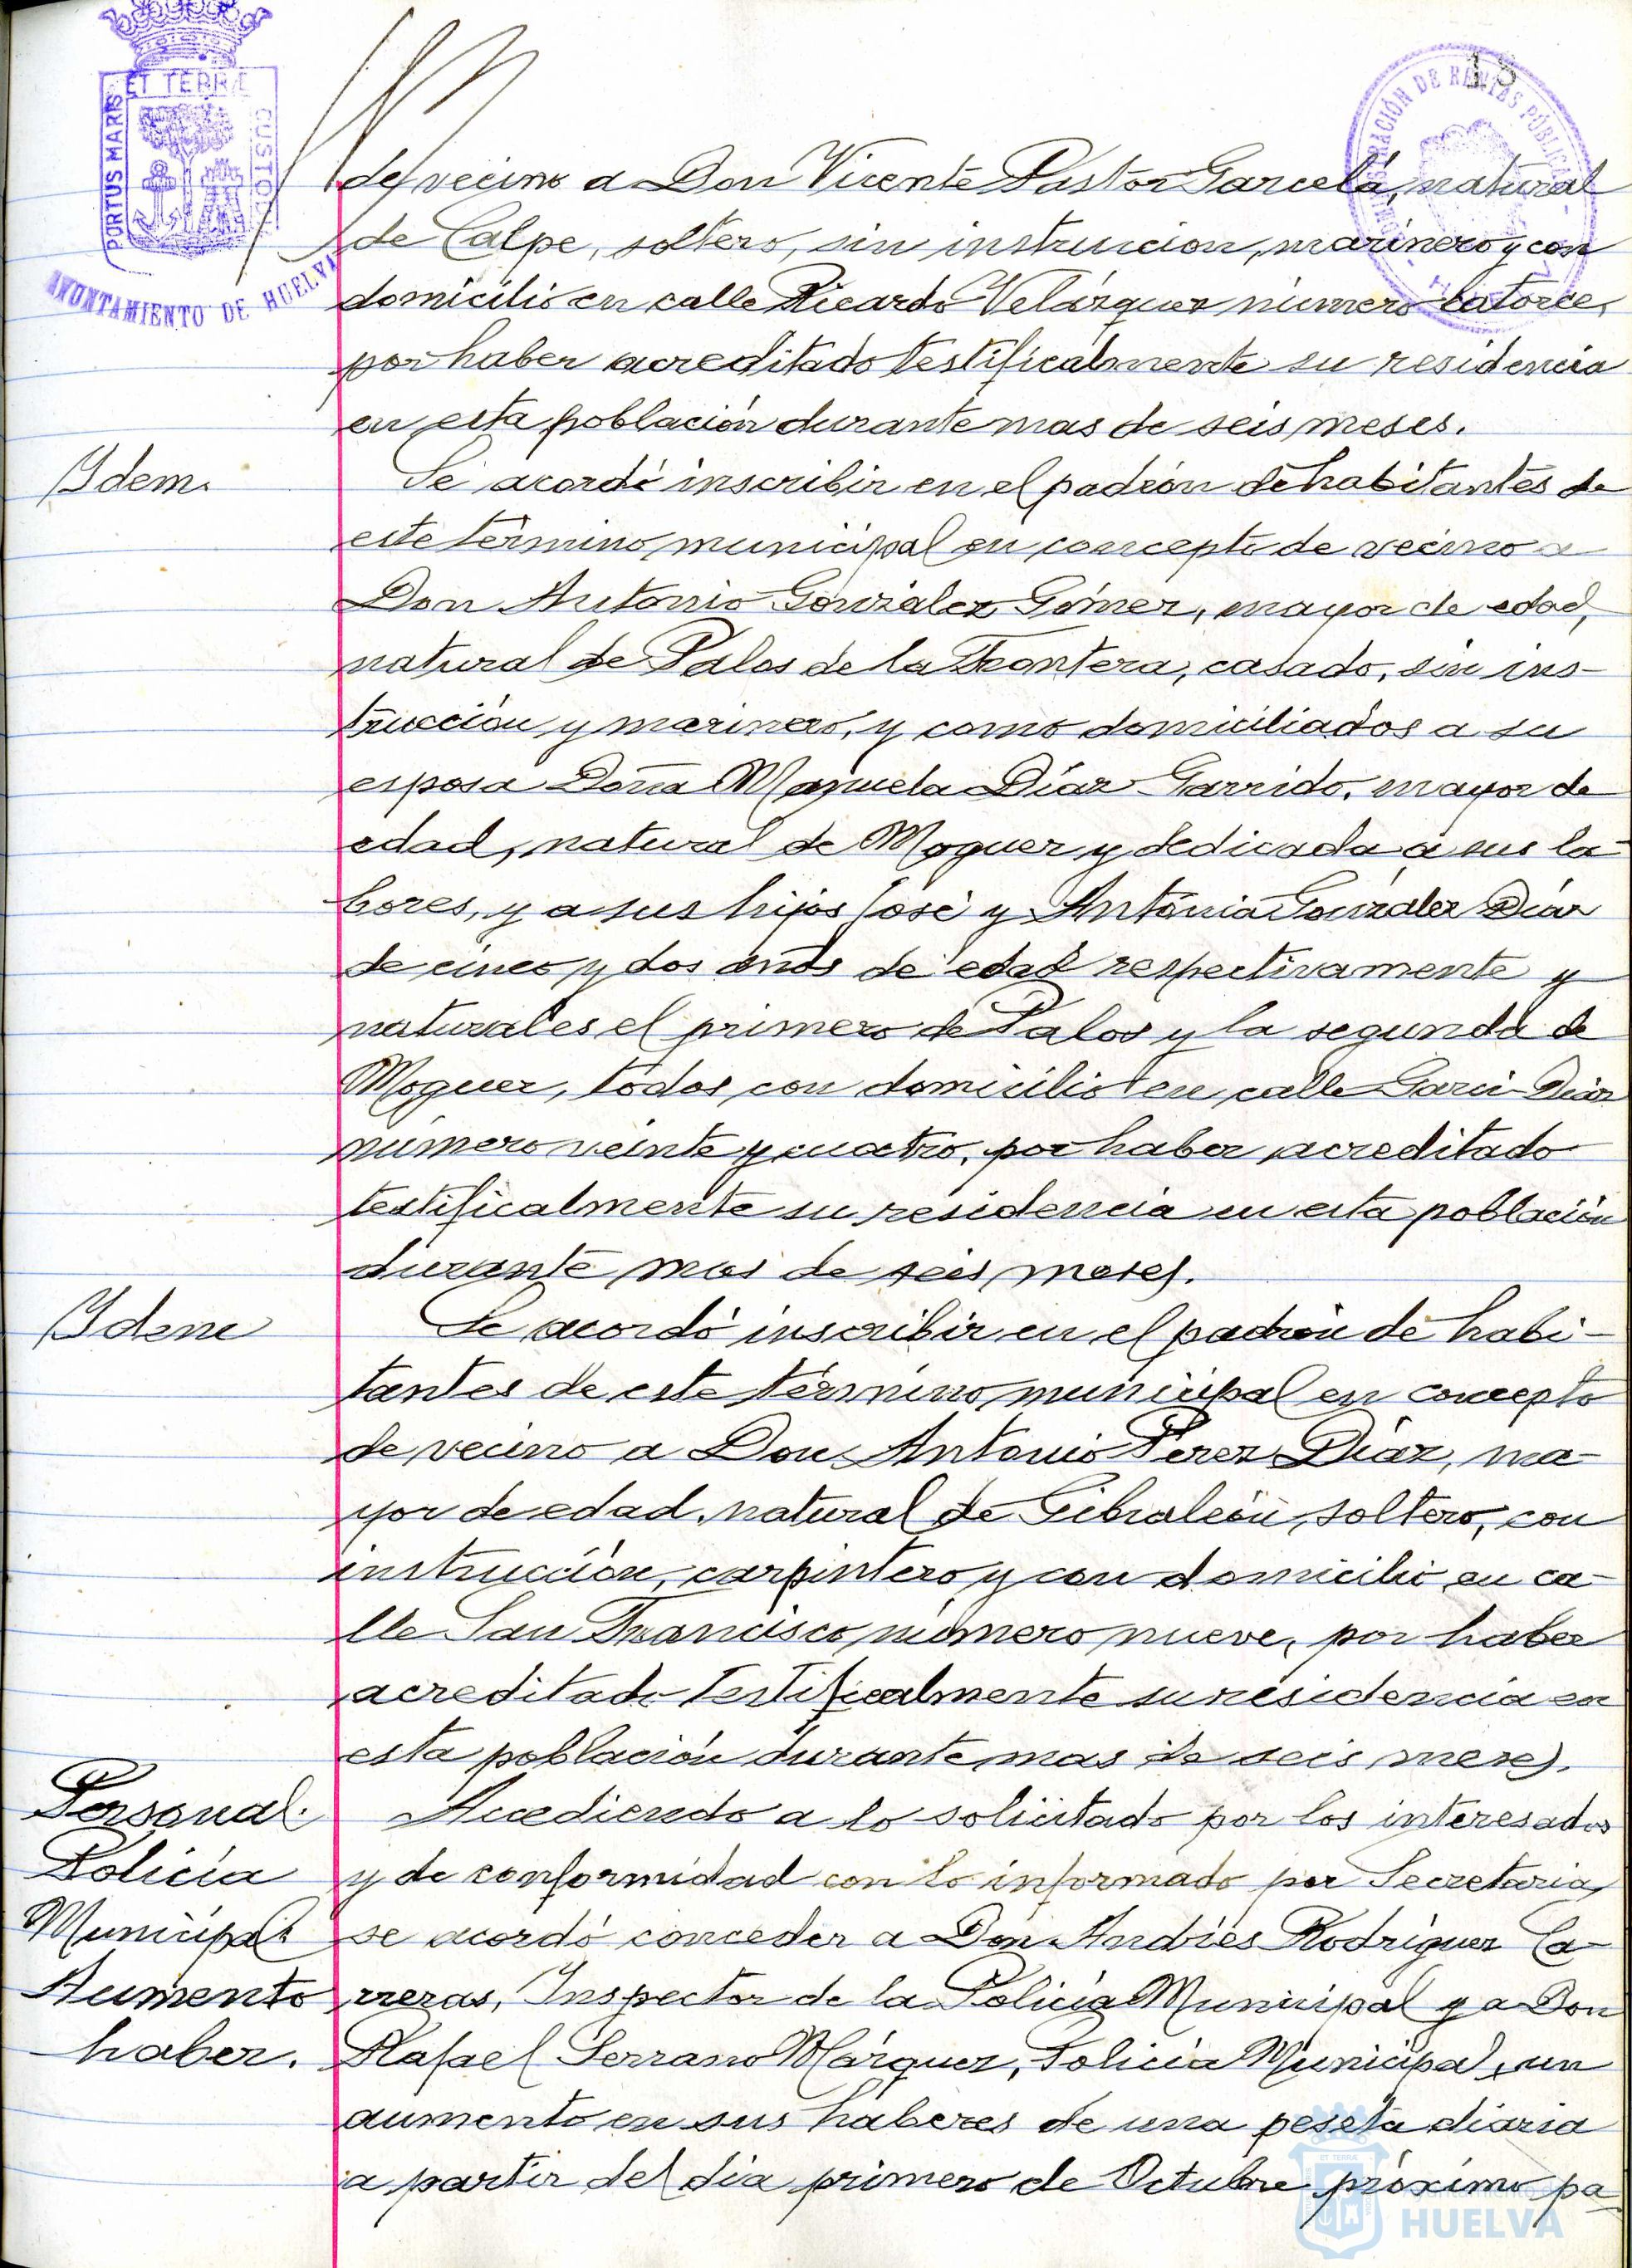 PORTUS MARIS ET TERRÆ CUSTODIA
AYUNTAMIENTO DE HUELVA
18
de vecino a Don Vicente Pastor Garcelá, natural
de Calpe, soltero, sin instrucion, marinero y con
domicilio en calle Ricardo Velázquez número catorce,
por haber acreditado testificalmente su residencia
en esta población durante mas de seis meses.
Idem.
Se acordó inscribir en el padrón de habitantes de
este término municipal en concepto de vecino a
Don Antonio González Gómez, mayor de edad,
natural de Palos de la Frontera, casado, sin ins-
trucción y marinero, y como domiciliados a su
esposa Doña Manuela Díaz Garrido, mayor de
edad, natural de Moguer y dedicada a sus la-
bores, y a sus hijos José y Antonia González Díaz
de cinco y dos años de edad respectivamente y
naturales el primero de Palos y la segunda de
Moguer, todos con domicilio en calle Garci-Díaz
número veinte y cuatro, por haber acreditado
testificalmente su residencia en esta población
durante mas de seis meses.
Idem
Se acordó inscribir en el padrón de habi-
tantes de este término municipal en concepto
de vecino a Don Antonio Perez Díaz, ma-
yor de edad, natural de Gibraleón, soltero, con
instrucción, carpintero y con domicilio en ca-
lle San Francisco número nueve, por haber
acreditado testificalmente su residencia en
esta población durante mas de seis meses.
Personal.
Policía
Municipal
Aumento
haber.
Accediendo a lo solicitado por los interesados
y de conformidad con lo informado por Secretaria,
se acordó conceder a Don Andrés Rodríguez Ca-
rreras, Inspector de la Policía Municipal y a Don
Rafael Serrano Márquez, Policía Municipal, un
aumento en sus haberes de una peseta diaria
a partir del día primero de Octubre próximo pa-
HUELVA